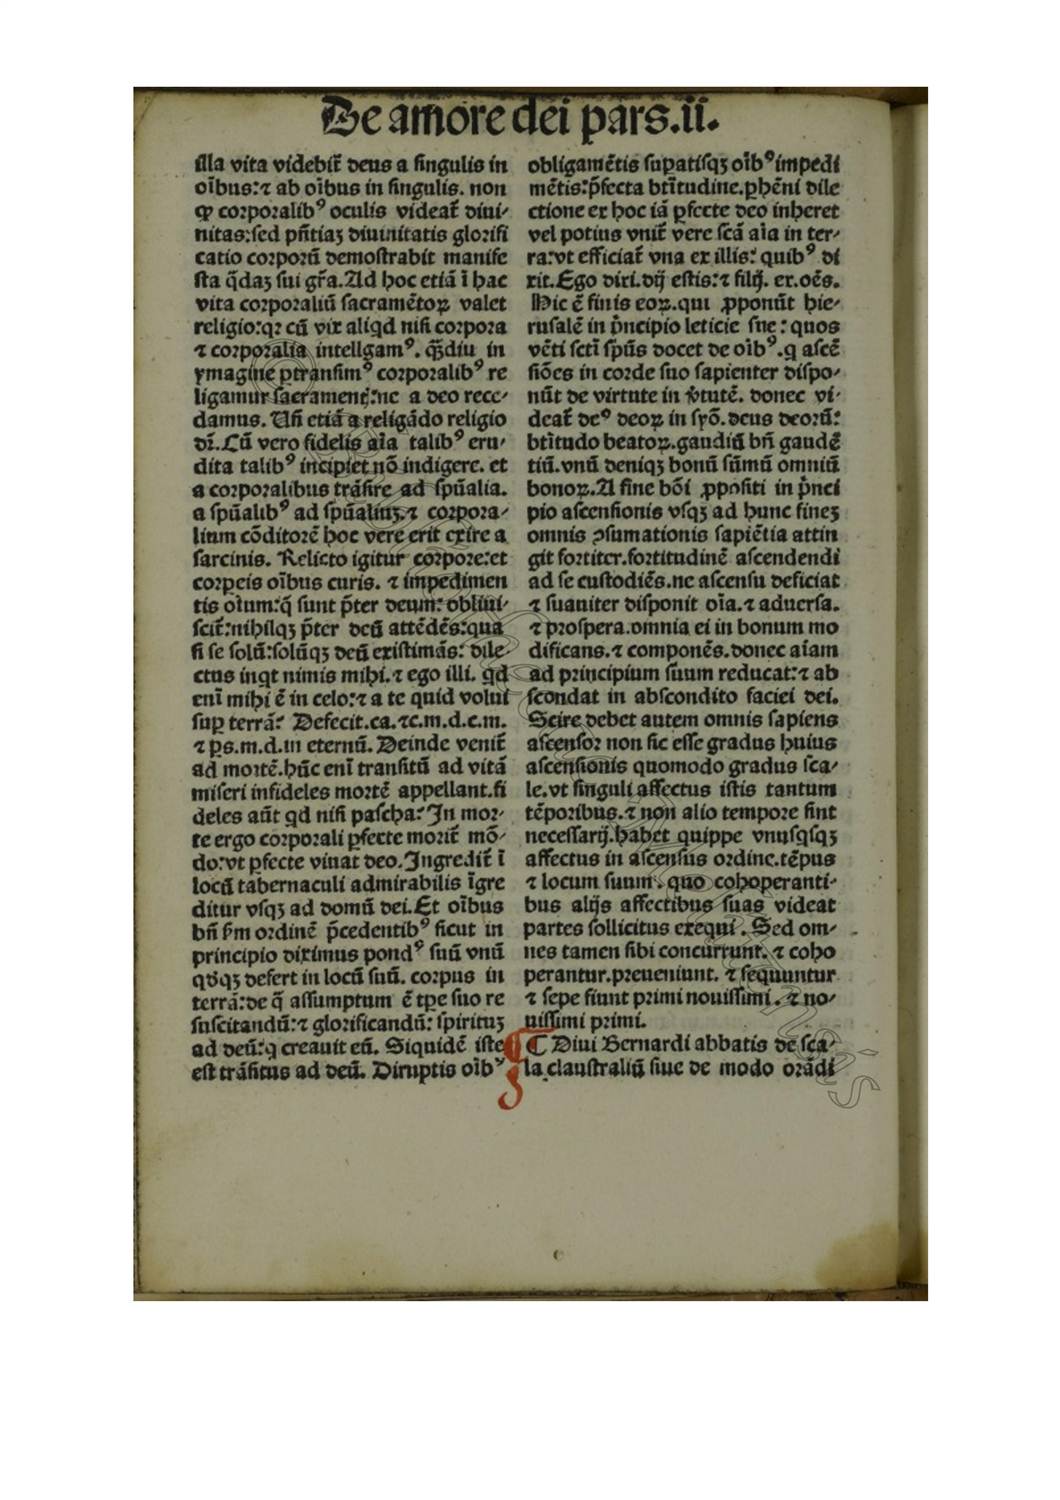 De amore dei pars.ii.
illa vita videbit̃ deus a singulis in
oĩbus:⁊ ab oĩbus in singulis. non
ꝙ corporalibꝰ oculis videat̃ diui-
nitas:sed p̃ñtiaꝫ diuinitatis glorifi
catio corporũ demõstrabit manife
sta q̃daꝫ sui gr̃a. Ad hoc etiã ĩ hac
vita corporaliũ sacramẽtoꝝ valet
religio:qꝛ cũ vix aliqd nisi corpora
⁊ corporalia intellgamꝰ. qͣ̃diu in
ymagine ꝑtransimꝰ corporalibꝰ re
ligamur sacramentꝭ:ne a deo rece-
damus. Uñ etiã a religãdo religio
dr̃. Cũ vero fidelis aĩa talibꝰ eru-
dita talibꝰ incipiet nõ indigere. et
a corporalibus trãsire ad spũalia.
a spũalibꝰ ad spũaliuꝫ.⁊ corpora-
lium cõditorẽ hoc vere erit exire a
sarcinis. Relicto igitur corpore:et
corꝑeis oĩbus curis. ⁊ impedimen
tis oĩum:q̃ sunt p̃ter deum: obliui-
scit̃:nihilqꝫ p̃ter deũ attẽdẽs:qua
si se solũ:solũqꝫ deũ existimãs: dile-
ctus inqt nimis mihi.⁊ ego illi. qd
enĩ mihi ẽ in celo:⁊ a te quid volui
suꝑ terrã: Defecit.ca.⁊c.m.d.c.m.
⁊ ꝑs.m.d.in eternũ. Deinde venit̃
ad mortẽ.hũc enĩ transitũ ad vitã
miseri infideles mortẽ appellant.fi
deles aũt qd nisi pascha: In mor-
te ergo corporali ꝑfecte morit̃ mõ-
do:vt ꝑfecte viuat deo. Ingredit̃ ĩ
locũ tabernaculi admirabilis ĩgre
ditur vsqꝫ ad domũ dei. Et oĩbus
bñ s̃m ordinẽ p̃cedentibꝰ sicut in
principio diximus pondꝰ suũ vnũ
qdqꝫ defert in locũ suũ. corpus in
terrã:de q̃ assumptum ẽ tꝑe suo re
suscitandũ:⁊ glorificandũ: spirituꝫ
ad deũ:q creauit eũ. Siquidẽ iste
est trãsitus ad deũ. Diruptis oĩbꝰ
obligamẽtis suꝑatisqꝫ oĩbꝰ impedi
mẽtis:ꝑ̃fecta btĩtudine.ꝑhẽni dile
ctione ex hoc iã ꝑfecte deo inheret
vel potius vnit̃ vere scã aĩa in ter-
ra:vt efficiat̃ vna ex illis: quibꝰ di
xit. Ego dixi.dij estis:⁊ filij. ex.oẽs.
Hic ẽ finis eoꝝ.qui ꝓponũt hie-
rusalẽ in p̃ncipio leticie sue: quos
vẽti sctĩ spũs docet de oĩbꝰ.q ascẽ
siões in corde suo sapienter dispo-
nũt de virtute in v̾tutẽ. donec vi-
deat̃ deꝰ deoꝝ in syõ.deus deorũ:
btĩtudo beatoꝝ.gaudiũ bñ gaudẽ
tiũ.vnũ deniqꝫ bonũ sũmũ omniũ
bonoꝝ. A fine bõi ꝓpositi in p̃nci
pio ascensionis vsqꝫ ad hunc fineꝫ
omnis ꝯsumationis sapiẽtia attin
git fortiter.fortitudinẽ ascendendi
ad se custodiẽs.ne ascensu deficiat
⁊ suauiter disponit oĩa.⁊ aduersa.
⁊ prospera.omnia ei in bonum mo
dificans.⁊ componẽs.donec aĩam
ad principium suum reducat:⁊ ab
scondat in abscondito faciei dei.
Scire debet autem omnis sapiens
ascensor non sic esse gradus huius
ascensionis quomodo gradus sca-
le.vt singuli affectus istis tantum
tẽporibus.⁊ non alio tempore sint
necessarij.habet quippe vnusqsqꝫ
affectus in ascensus ordine.tẽpus
⁊ locum suum. quo cohoperanti-
bus alijs affectibus suas videat
partes sollicitus exequi. Sed om-
nes tamen sibi concurrunt.⁊ coho
perantur.preueniunt. ⁊ sequuntur
⁊ sepe fiunt primi nouissimi. ⁊ no-
uissimi primi.
⸿ Diui Bernardi abbatis de sca-
la claustraliũ siue de modo orãdi